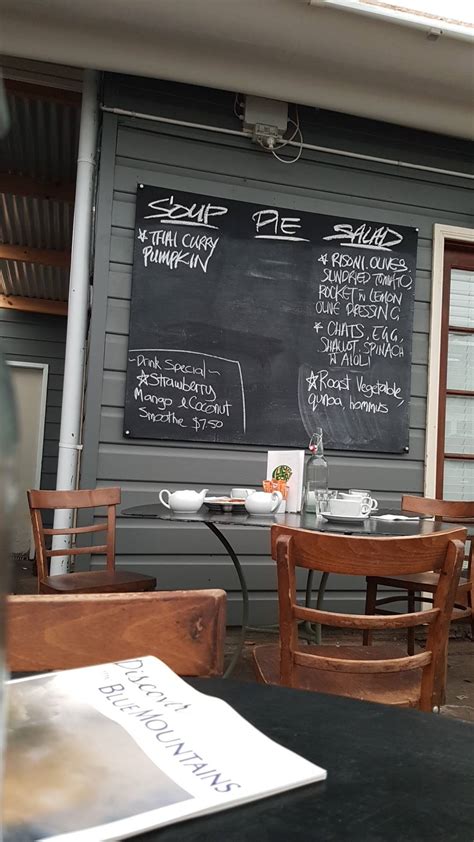 SOUP PIE SALAD
★ THAI CURRY
PUMPKIN
★ RISONI, OLIVES,
SUNDRIED TOMATO,
ROCKET in LEMON
OLIVE DRESSING
★ CHATS, EGG,
SHALLOT, SPINACH
in AIOLI
★ Roast Vegetable,
qunoa, hommus
~Drink Special~
★ Strawberry
Mango & Coconut
Smoothe $7.50
Discover
BLUE MOUNTAINS